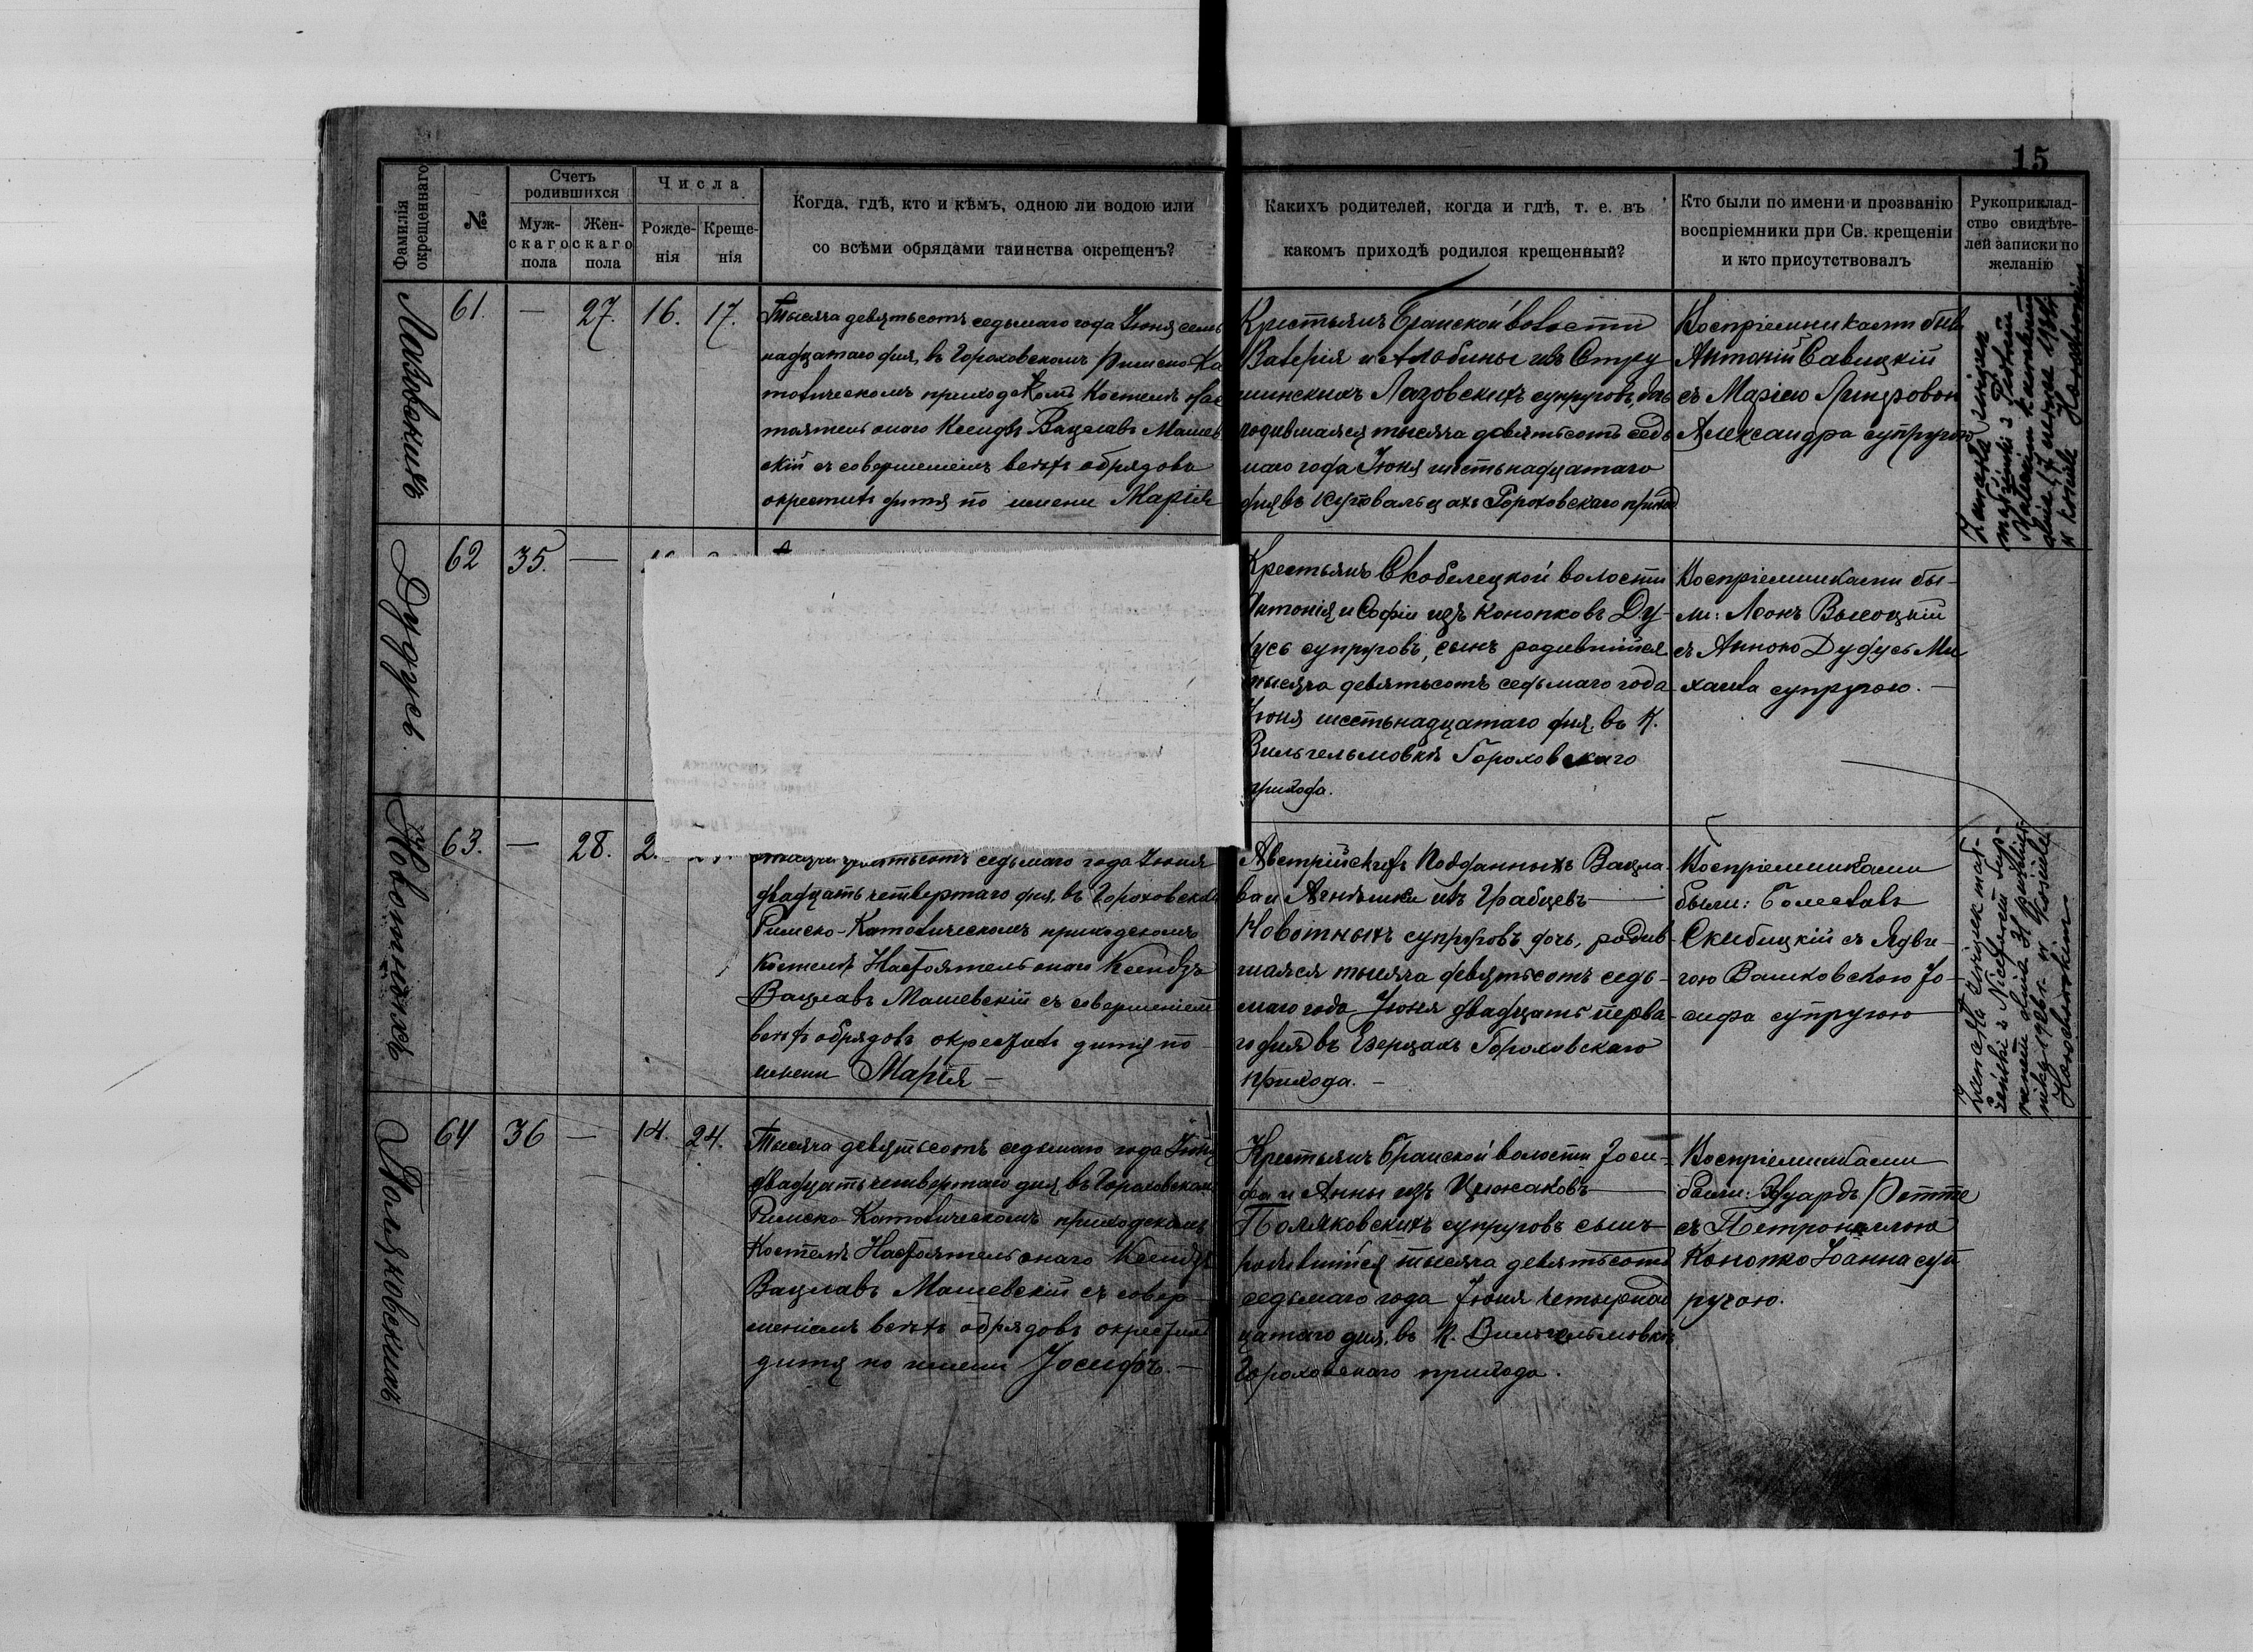 15
Фамилія окрещеннаго
№
Счетъ родившихся
Муж-
скаго
пола
Жен-
скаго
пола
Числа
Рожде-
нія
Креще-
нія
Когда, гдѣ, кто и кѣмъ, одною ли водою или
со всѣми обрядами таинства окрещенъ?
Какихъ родителей, когда и гдѣ, т. е. въ
какомъ приходѣ родился крещенный?
Кто были по имени и прозванію
воспріемники при Св. крещеніи
и кто присутствовалъ
Рукоприклад-
ство свидѣте-
лей записки по
желанію
61. — 27. 16. 17.
Тысяча девятьсотъ седьмаго года Іюня семь
надцатаго дня, въ Гороховскомъ Римско-Ка
толическомъ приходскомъ Костелѣ Нас
тоятель онаго Ксендзъ Вацлавъ Машев
скій съ совершеніемъ всѣхъ обрядовъ
окрестилъ дитя по имени Марія
Крестьянъ Бранской волости
Валерія и Альбины изъ Стру
шинскихъ Лазовскихъ супруговъ, дочь
родившаяся тысяча девятьсотъ седь
маго года Іюня шестьнадцатаго
дня въ Гороховскаго приход
Воспріемниками были
Антоній Савицкій
съ Маріею
Александра супругою
62 35. —
Дудусь
Крестьянъ Скобелецкой волости
Антонія и Софіи изъ Конопковъ Ду-
дусь супруговъ, сынъ родившійся
тысяча девятьсотъ седьмаго года
Іюня шестьнадцатаго дня, въ К.
Вильгельмовкѣ Гороховскаго
прихода.
Воспріемниками бы-
ли: Леонъ Высоцкій
съ Анною Дудусь Ми
хаила супругою. —
63. — 28. 2.
Новотныхъ
седьмаго года Іюня
двадцать четвертаго дня, въ Гороховскомъ
Римско-Католическомъ приходскомъ
Костелѣ Настоятель онаго Ксендзъ
Вацлавъ Машевскій съ совершеніемъ
всѣхъ обрядовъ окрестилъ дитя по
имени Марія —
Австрійскихъ Подданныхъ Вацла-
ва и Агнѣшки изъ Грабцевъ —
Новотныхъ супруговъ дочь, родив-
шаяся тысяча девятьсотъ седь-
маго года Іюня двадцать перва-
го дня въ Гороховскаго
прихода. —
Воспріемниками
были: Болеславъ
Скибицкій съ Ядви-
гою Вашковскою Іо-
сифа супругою
64 36 — 14. 24.
Поляковскихъ
Тысяча девятьсотъ седьмаго года Іюня
двадцать четвертаго дня, въ Гороховскомъ
Римско-Католическомъ приходскомъ
Костелѣ Настоятель онаго Ксендзъ
Вацлавъ Машевскій съ совер-
шеніемъ всѣхъ обрядовъ окрестилъ
дитя по имени Іосифъ. —
Крестьянъ Бранской волости Іоси-
фа и Анны изъ Цижаковъ —
Поляковскихъ супруговъ сынъ
родившійся тысяча девятьсотъ
седьмаго года Іюня четырнад
цатаго дня, въ К. Вильгельмовкѣ
Гороховскаго прихода.
Воспріемниками
были: Эдуардъ Ретте
съ Петронеллою
Конопко Іоанна суп
ругою.